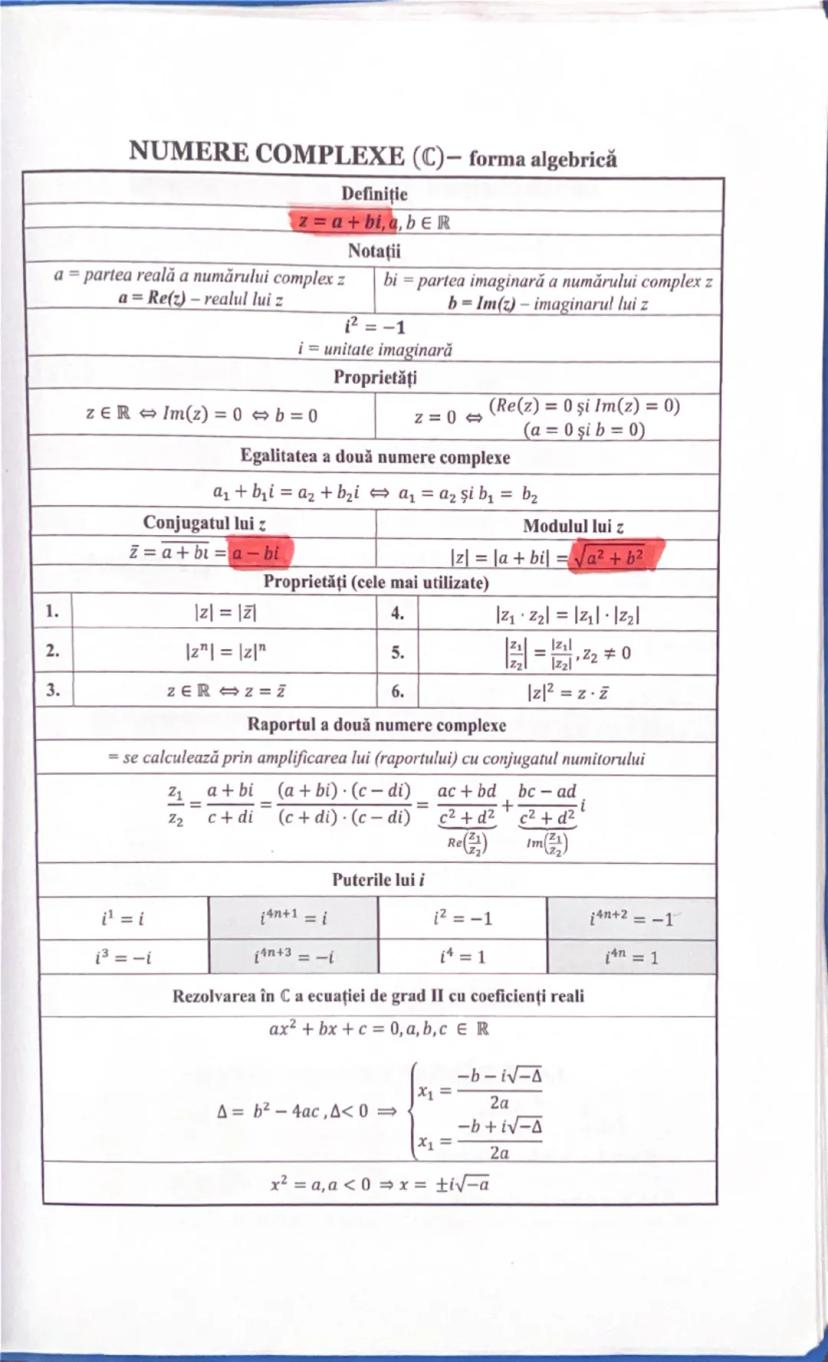 NUMERE COMPLEXE (ℂ)– forma algebrică
Definiție
z = a + bi, a, b ∈ ℝ
Notații
a = partea reală a numărului complex z
a = Re(z) – realul lui z
bi = partea imaginară a numărului complex z
b = Im(z) – imaginarul lui z
i² = −1
i = unitate imaginară
Proprietăți
z ∈ ℝ ⇔ Im(z) = 0 ⇔ b = 0
z = 0 ⇔ (Re(z) = 0 și Im(z) = 0)
(a = 0 și b = 0)
Egalitatea a două numere complexe
a₁ + b₁i = a₂ + b₂i ⇔ a₁ = a₂ și b₁ = b₂
Conjugatul lui z
Modulul lui z
z̄ = \overline{a + bi} = a − bi
|z| = |a + bi| = √(a² + b²)
Proprietăți (cele mai utilizate)
1. |z| = |z̄|
4. |z₁ · z₂| = |z₁| · |z₂|
2. |zⁿ| = |z|ⁿ
5. |z₁/z₂| = |z₁|/|z₂|, z₂ ≠ 0
3. z ∈ ℝ ⇔ z = z̄
6. |z|² = z · z̄
Raportul a două numere complexe
= se calculează prin amplificarea lui (raportului) cu conjugatul numitorului
z₁/z₂ = (a + bi)/(c + di) = ((a + bi) · (c − di))/((c + di) · (c − di)) = (ac + bd)/(c² + d²) + (bc − ad)/(c² + d²) i
Re(z₁/z₂) Im(z₁/z₂)
Puterile lui i
i¹ = i i⁴ⁿ⁺¹ = i i² = −1 i⁴ⁿ⁺² = −1
i³ = −i i⁴ⁿ⁺³ = −i i⁴ = 1 i⁴ⁿ = 1
Rezolvarea în ℂ a ecuației de grad II cu coeficienți reali
ax² + bx + c = 0, a, b, c ∈ ℝ
Δ = b² − 4ac , Δ< 0 ⇒
x₁ = (−b − i√−Δ)/2a
x₁ = (−b + i√−Δ)/2a
x² = a, a < 0 ⇒ x = ±i√−a